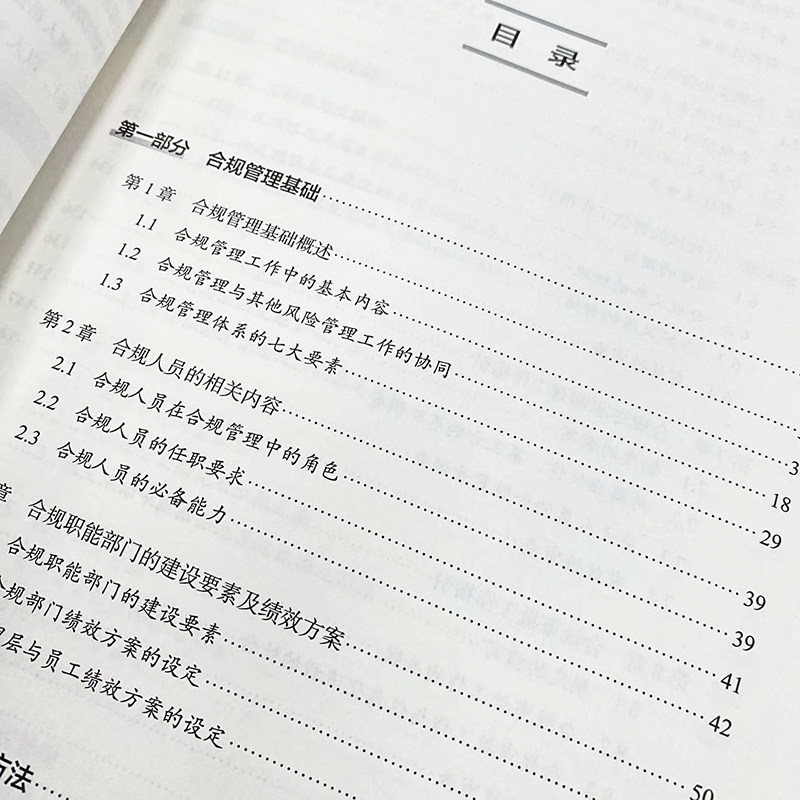 目 录
第一部分 合规管理基础
第1章 合规管理基础概述
1.1 合规管理工作中的基本内容 3
1.2 合规管理与其他风险管理工作的协同 18
1.3 合规管理体系的七大要素 29
第2章 合规人员的相关内容 39
2.1 合规人员在合规管理中的角色 39
2.2 合规人员的任职要求 41
2.3 合规人员的必备能力 42
章 合规职能部门的建设要素及绩效方案 50
合规职能部门的建设要素
合规部门绩效方案的设定
层与员工绩效方案的设定
方法